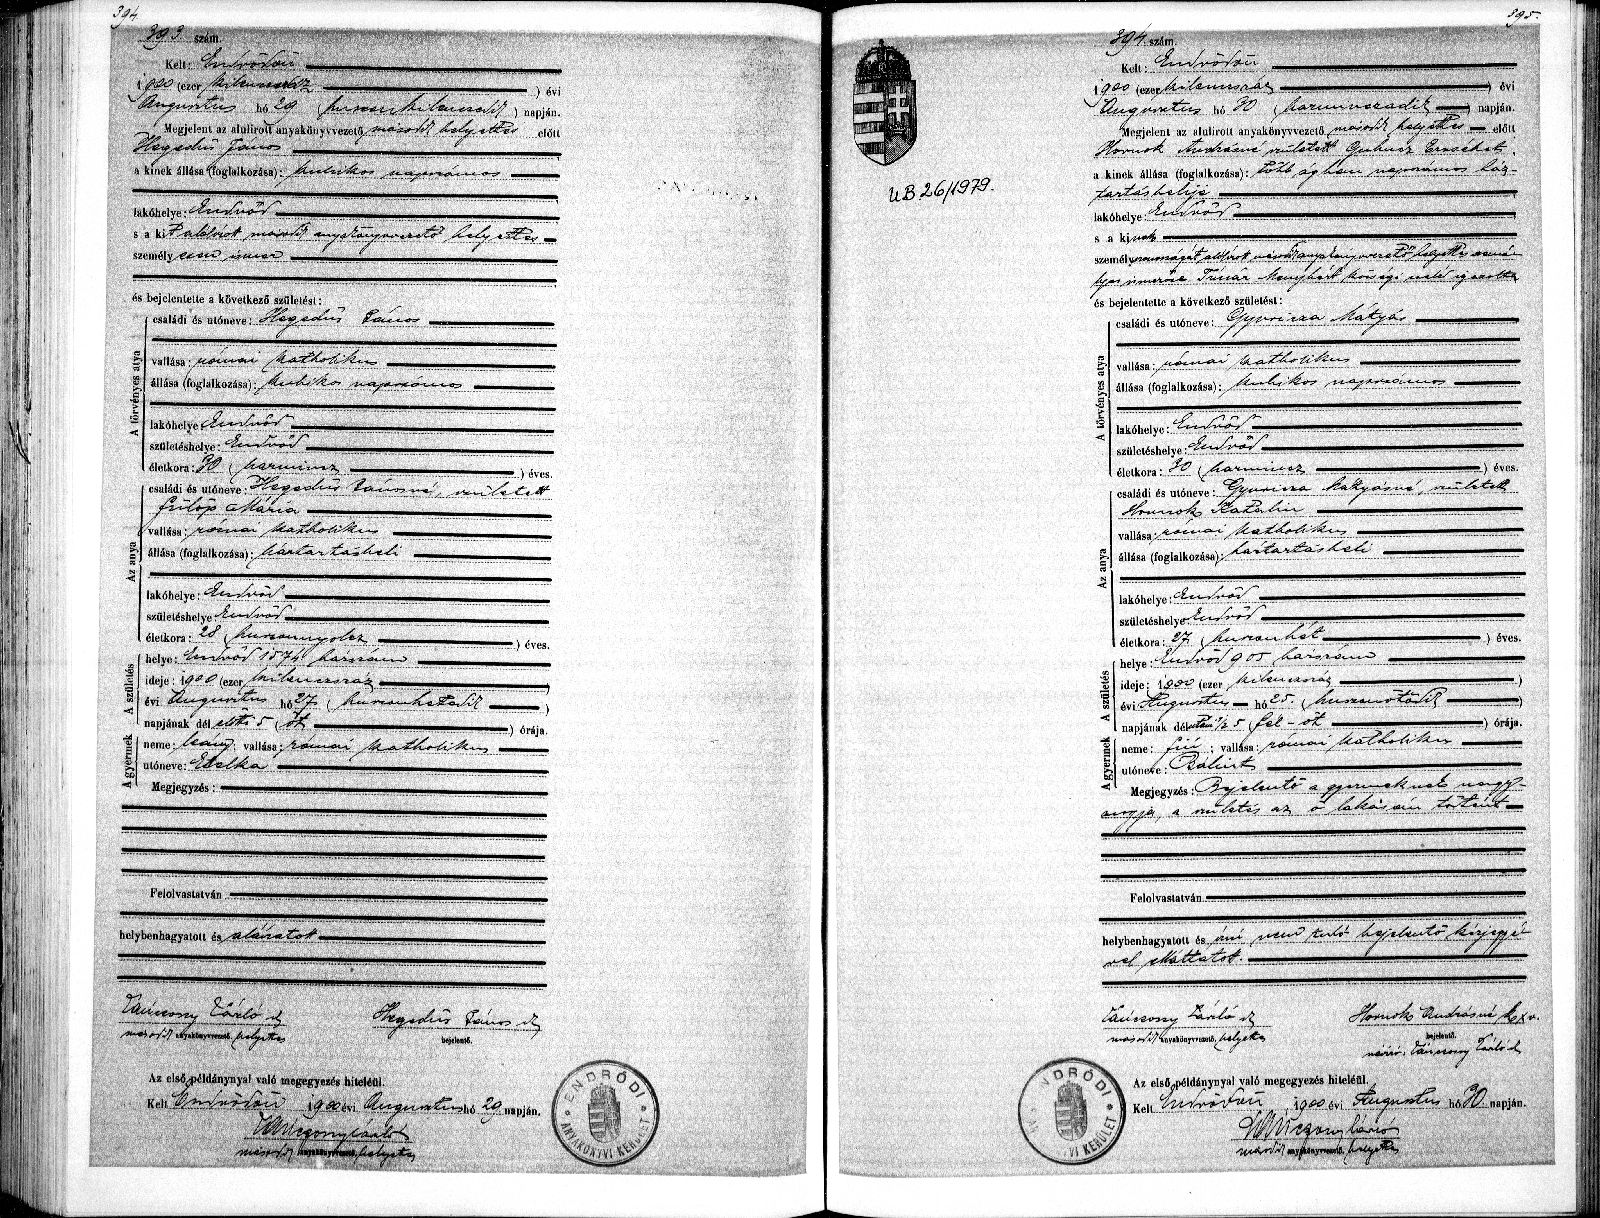 394
393 szám.
Kelt: Endrődön
1900 (ezer kilenczszáz ) évi
Augusztus hó 29 (huszonkilenczedik ) napján.
Megjelent az alulirott anyakönyvvezető másodk helyettes előtt
Hegedüs János
a kinek állása (foglalkozása): kubikos napszámos
lakóhelye: Endrőd
s a kit alólirott másodk anyakönyvvezető helyettes
személyesen ismer
és bejelentette a következő születést:
A törvényes atya
családi és utóneve: Hegedüs János
vallása: római katholikus
állása (foglalkozása): kubikos napszámos
lakóhelye Endrőd
születéshelye: Endrőd
életkora: 30 (harmincz ) éves.
Az anya
családi és utóneve: Hegedüs Jánosné, született
Fülöp Mária
vallása: római katholikus
állása (foglalkozása): háztartásbeli
lakóhelye: Endrőd
születéshelye Endrőd
életkora: 28 (huszonnyolcz ) éves.
A születés
helye: Endrőd 1574 házszám
ideje: 1900 (ezer kilenczszáz )
évi Augusztus hó 27 (huszonhetedik )
napjának dél előtt 5 (öt ) órája.
A gyermek
neme: leány; vallása: római katholikus
utóneve: Etelka
Megjegyzés:
Felolvastatván
helybenhagyatott és aláiratott
Vánczony László
másodk anyakönyvvezető, helyettes
Hegedüs János
bejelentő.
Az első példánynyal való megegyezés hiteléül.
Kelt Endrődön 1900 évi Augusztus hó 29 napján.
másodk anyakönyvvezető, helyettes
ENDRŐDI ANYAKÖNYVI KERÜLET
395.
394. szám.
Kelt: Endrődön
1900 (ezer kilenczszáz ) évi
Augusztus hó 30 (harminczadik ) napján.
Megjelent az alulirott anyakönyvvezető másodk helyettes előtt
Hornok Andrásné született Erzsébet
a kinek állása (foglalkozása): több ágban napszámos ház-
tartásbelije
lakóhelye: Endrőd
s a kinek
személyazonosságát alólirott másodk anyakönyvvezető helyettes
és bejelentette a következő születést:
A törvényes atya
családi és utóneve: Gyuricza Mátyás
vallása: római katholikus
állása (foglalkozása): kubikos napszámos
lakóhelye: Endrőd
születéshelye: Endrőd
életkora: 30 (harmincz ) éves.
Az anya
családi és utóneve: Gyuricza Mátyásné, született
Hornok Katalin
vallása: római katholikus
állása (foglalkozása): háztartásbeli
lakóhelye: Endrőd
születéshelye: Endrőd
életkora: 27 (huszonhét ) éves.
A születés
helye: Endrőd 905 házszám
ideje: 1900 (ezer kilenczszáz )
évi Augusztus hó 25. (huszonötödik )
napjának dél után 1/2 5 (fél-öt ) órája.
A gyermek
neme: fiú; vallása: római katholikus
utóneve: Bálint
Megjegyzés: Bejelentő a gyermeknek nagy-
anyja, a születés az ő lakásán történt
Felolvastatván
helybenhagyatott és irni nem tudó bejelentő kézjegyé-
vel elláttatott.
Vánczony László
másodk anyakönyvvezető, helyettes
Hornok Andrásné
bejelentő.
Az első példánynyal való megegyezés hiteléül.
Kelt Endrődön 1900 évi Augusztus hó 30 napján.
másodk anyakönyvvezető, helyettes
UB 26/1979.